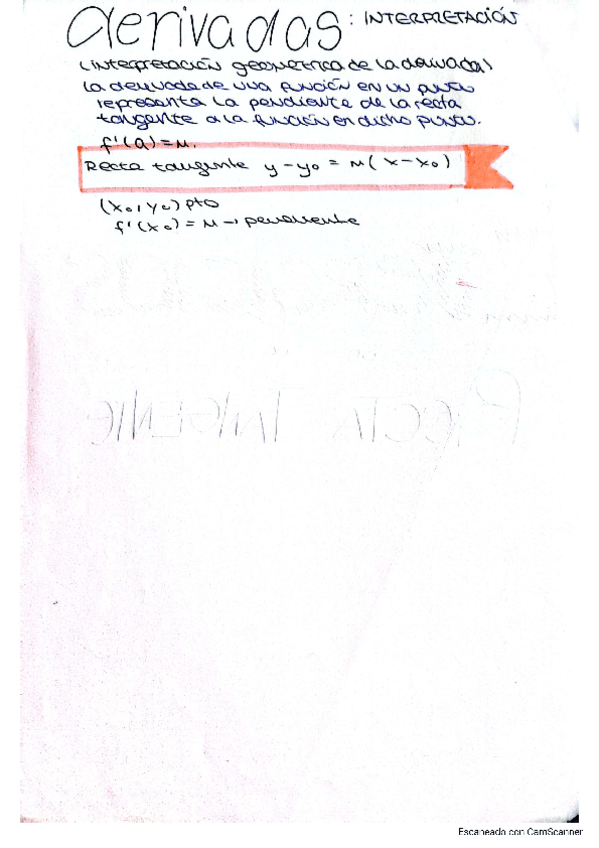 derivadas: INTERPRETACIÓN
(interpretación geométrica de la derivada)
La derivada de una función en un punto
representa la pendiente de la recta
tangente a la función en dicho punto.
f'(a) = m.
Recta tangente y - y₀ = m(x - x₀)
(x₀, y₀) pto
f'(x₀) = m → pendiente
RECTA TANGENTE
Escaneado con CamScanner